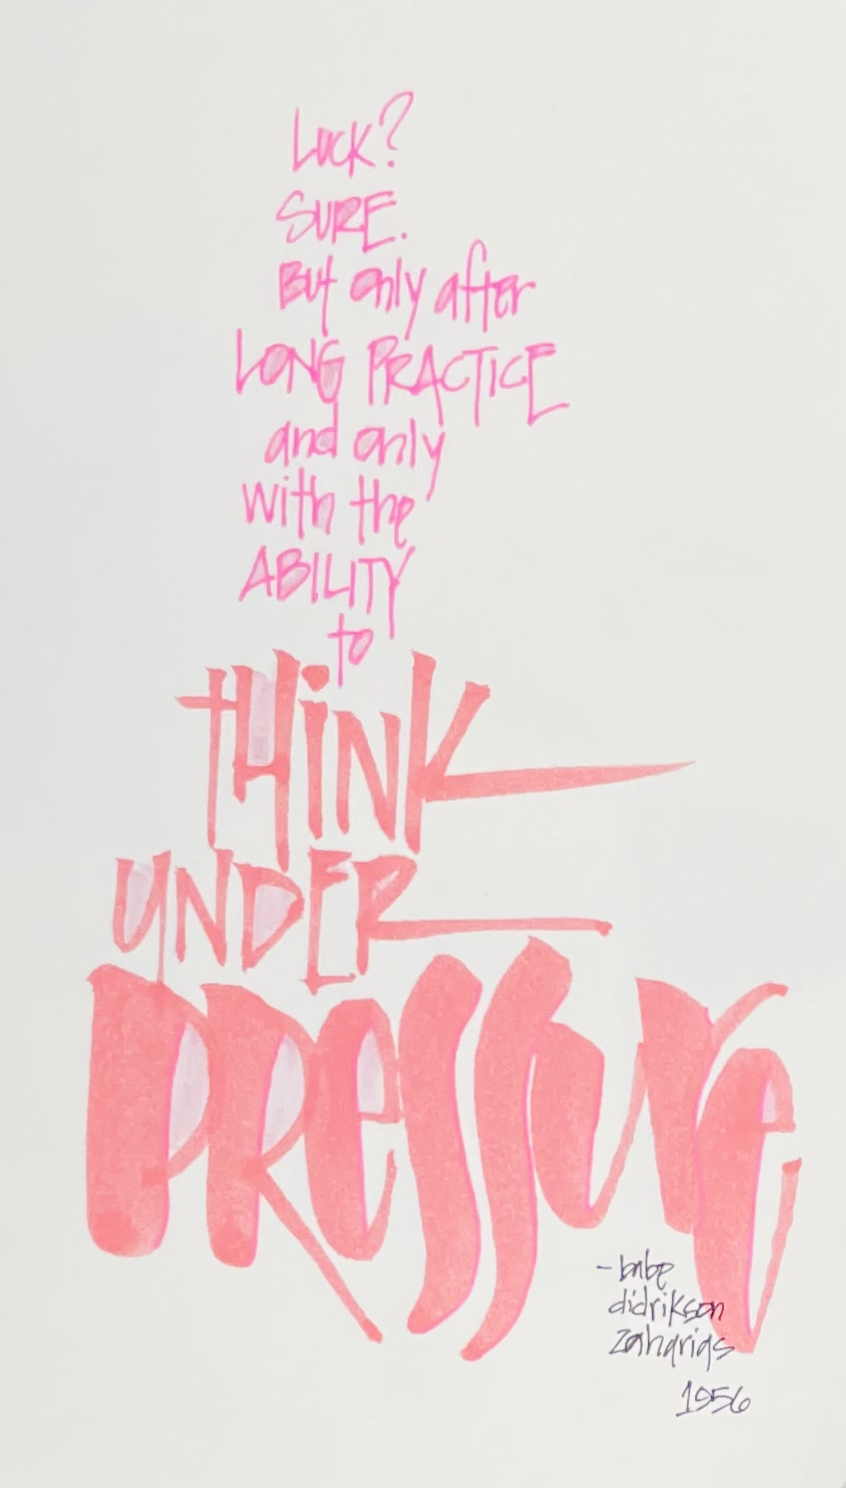 Luck?
SURE.
But only after
LONG PRACTICE
and only
with the
ABILITY
to
tHiNK
UNDER
PRessure
- babe
didrikson
zaharias
1956